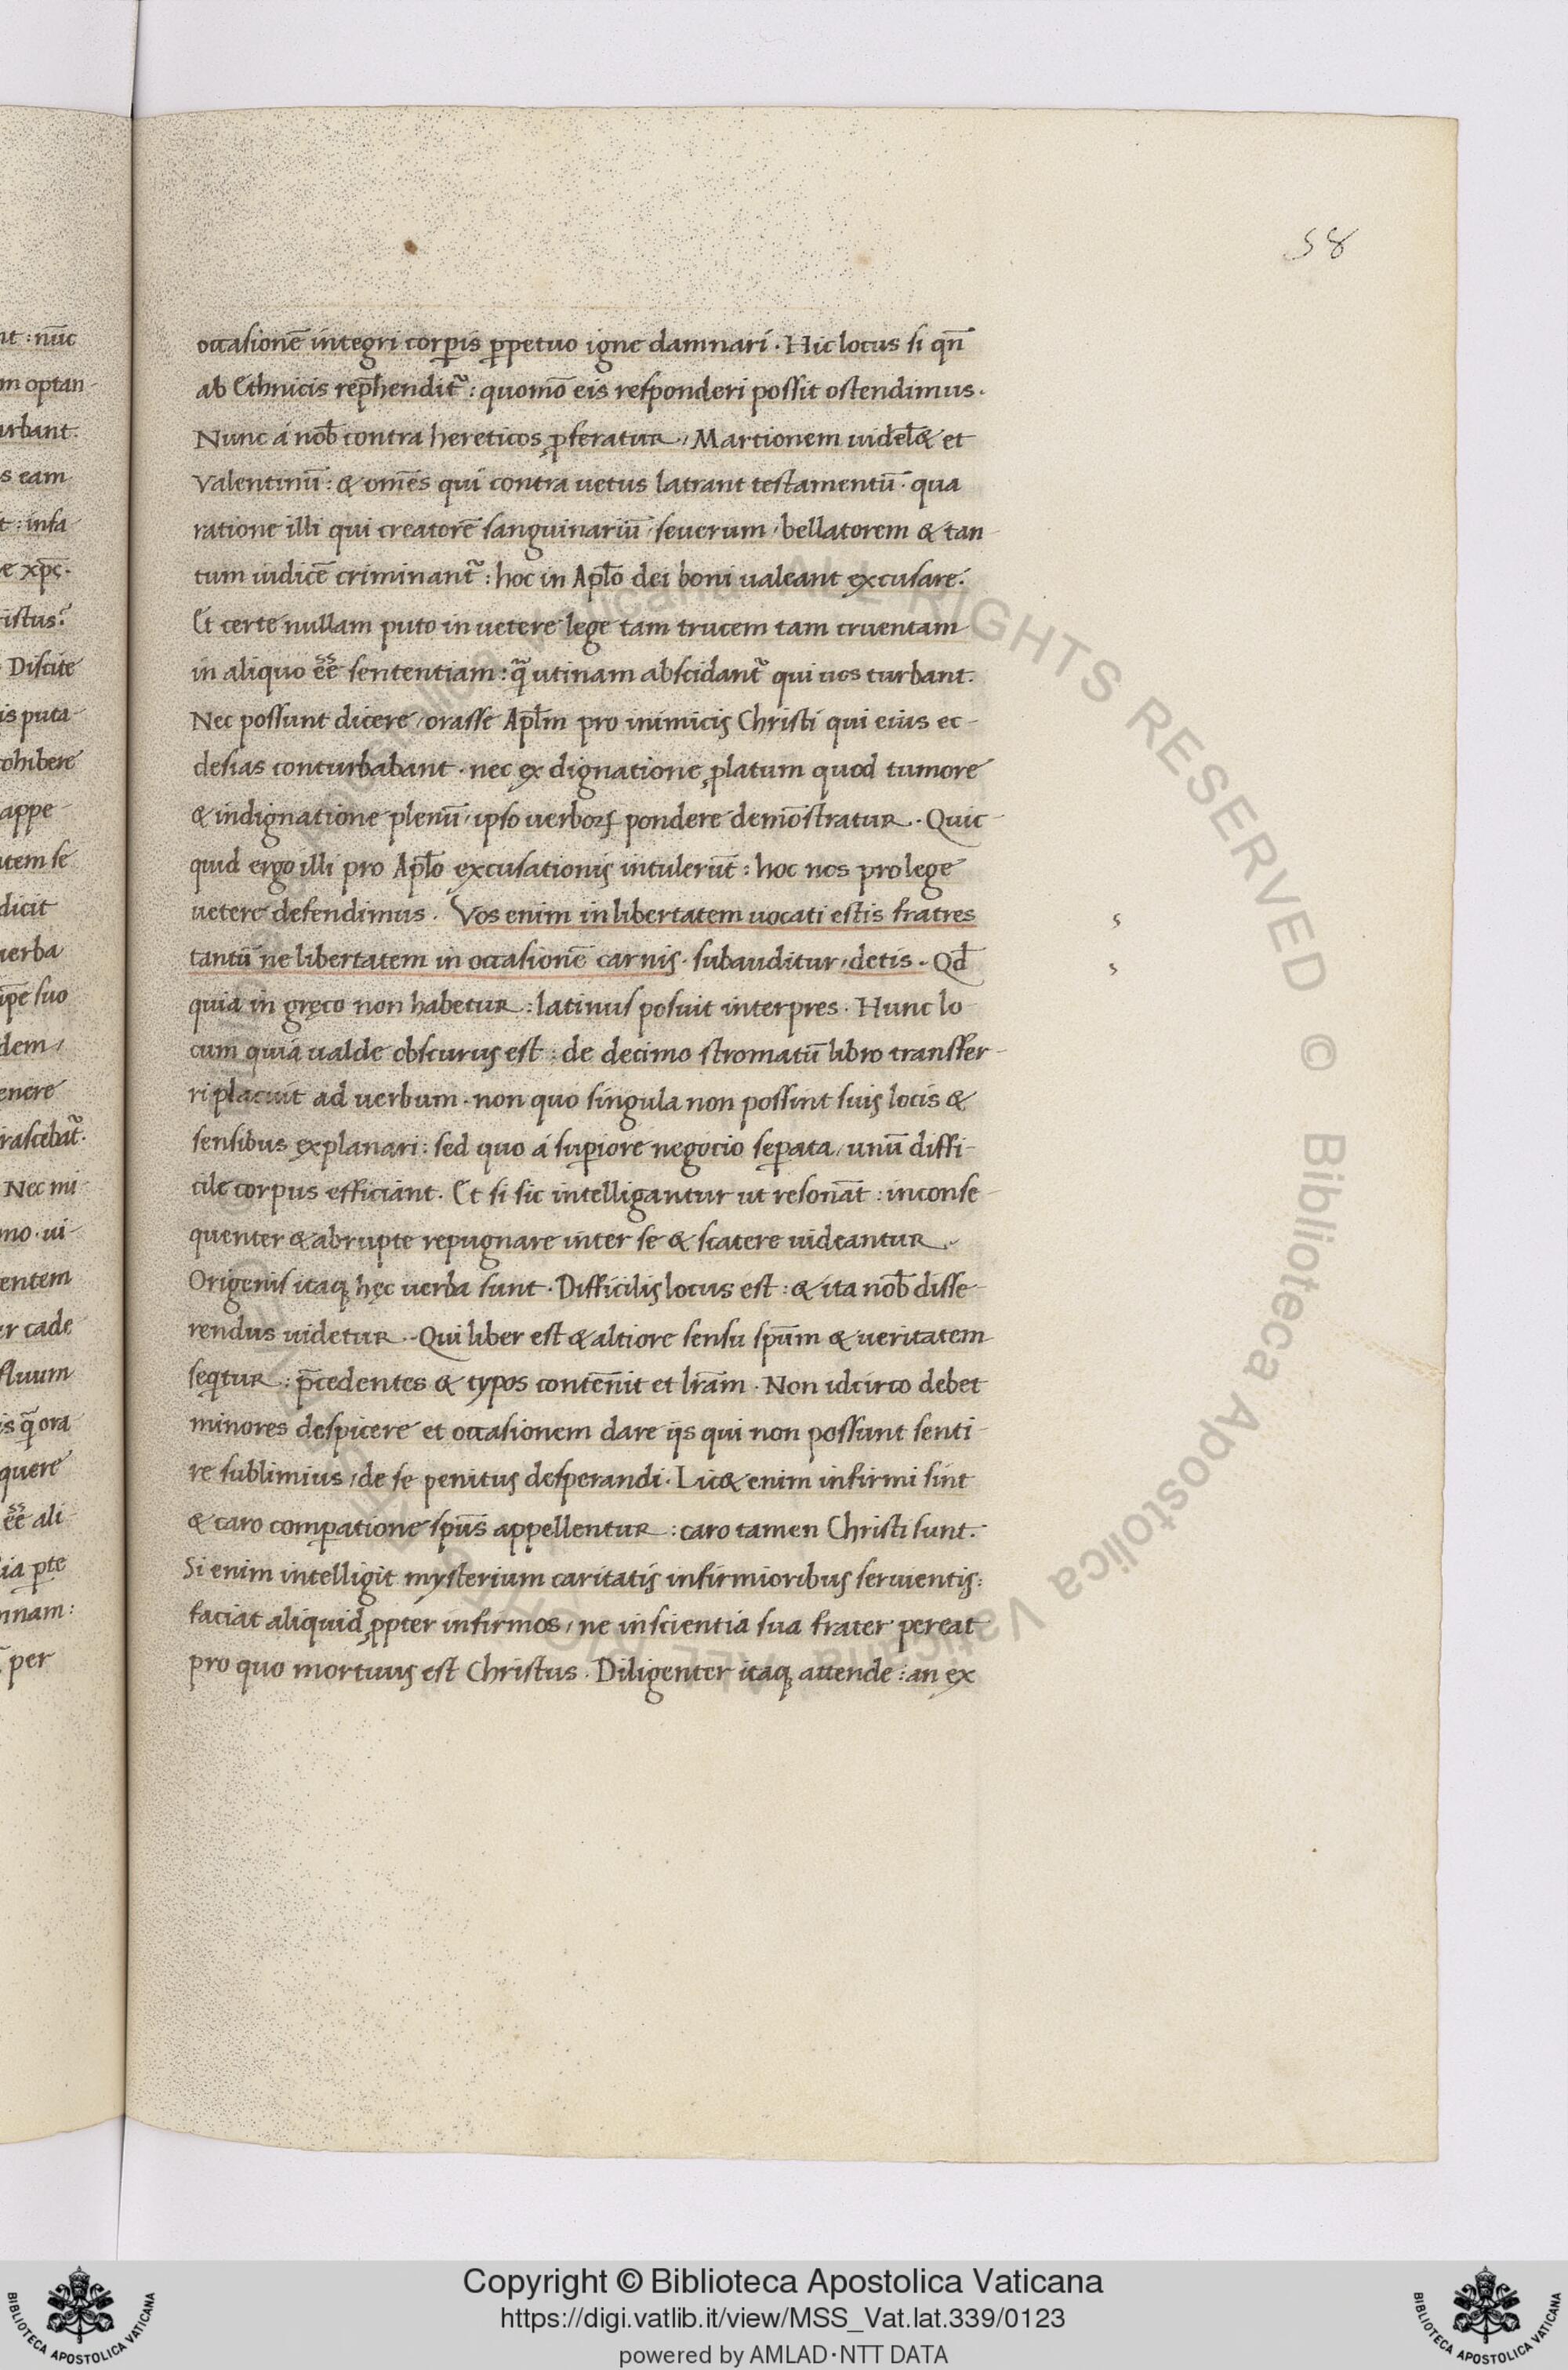 58
occasionē integri corꝑis ꝑpetuo igne damnari · Hic locus si qn̄
ab Ethnicis rep̄hendit᷑ : quomō eis responderi possit ostendimus ·
Nunc á nob̄ contra hereticos ꝓferatur / Martionem uidel& et
Valentinū : & om̄es qui contra uetus latrant testamentū · qua
ratione illi qui creatorē sanguinariū / seuerum / bellatorem & tan-
tum iudicē criminant᷑ : hoc in Apl̄o dei boni ualeant excusare ·
Et certe nullam puto in uetere lege tam trucem tam cruentam
in aliquo ēē sententiam : q̄ utinam abscidant᷑ qui uos turbant ·
Nec possunt dicere / orasse Apl̄m pro inimicis Christi qui eius ec-
clesias conturbabant · nec ex dignatione ꝓlatum quod tumore
& indignatione plenū / ipso uerboꝝ pondere demōstratur · Quic-
quid ergo illi pro Apl̄o excusationis intulerūt : hoc nos pro lege
uetere defendimus · Vos enim in libertatem uocati estis fratres
tantū ne libertatem in occasionē carnis · subauditur / detis · Qd̄
quia in gręco non habetur : latinus posuit interpres · Hunc lo-
cum quia ualde obscurus est : de decimo stromatū libro transfer-
ri placuit ad uerbum · non quo singula non possint suis locis &
sensibus explanari : sed quo á suꝑiore negocio seꝑata / unū diffi-
cile corpus efficiant · Et si sic intelligantur ut resonāt : inconse-
quenter & abrupte repugnare inter se & scatere uideantur ·
Origenis itaqꝫ hęc uerba sunt · Difficilis locus est : & ita nob̄ disse-
rendus uidetur · Qui liber est & altiore sensu sp̄um & ueritatem
seqtur : p̄cedentes & typos contēnit et lr̄am · Non idcirco debet
minores despicere et occasionem dare ijs qui non possunt senti-
re sublimius / de se penitus desperandi · Lic& enim infirmi sint
& caro comꝑatione sp̄us appellentur : caro tamen Christi sunt ·
Si enim intelligit mysterium caritatis infirmioribus seruientis :
faciat aliquid ꝓpter infirmos / ne in scientia sua frater pereat
pro quo mortuus est Christus · Diligenter itaqꝫ attende : an ex
Copyright © Biblioteca Apostolica Vaticana
https://digi.vatlib.it/view/MSS_Vat.lat.339/0123
powered by AMLAD·NTT DATA